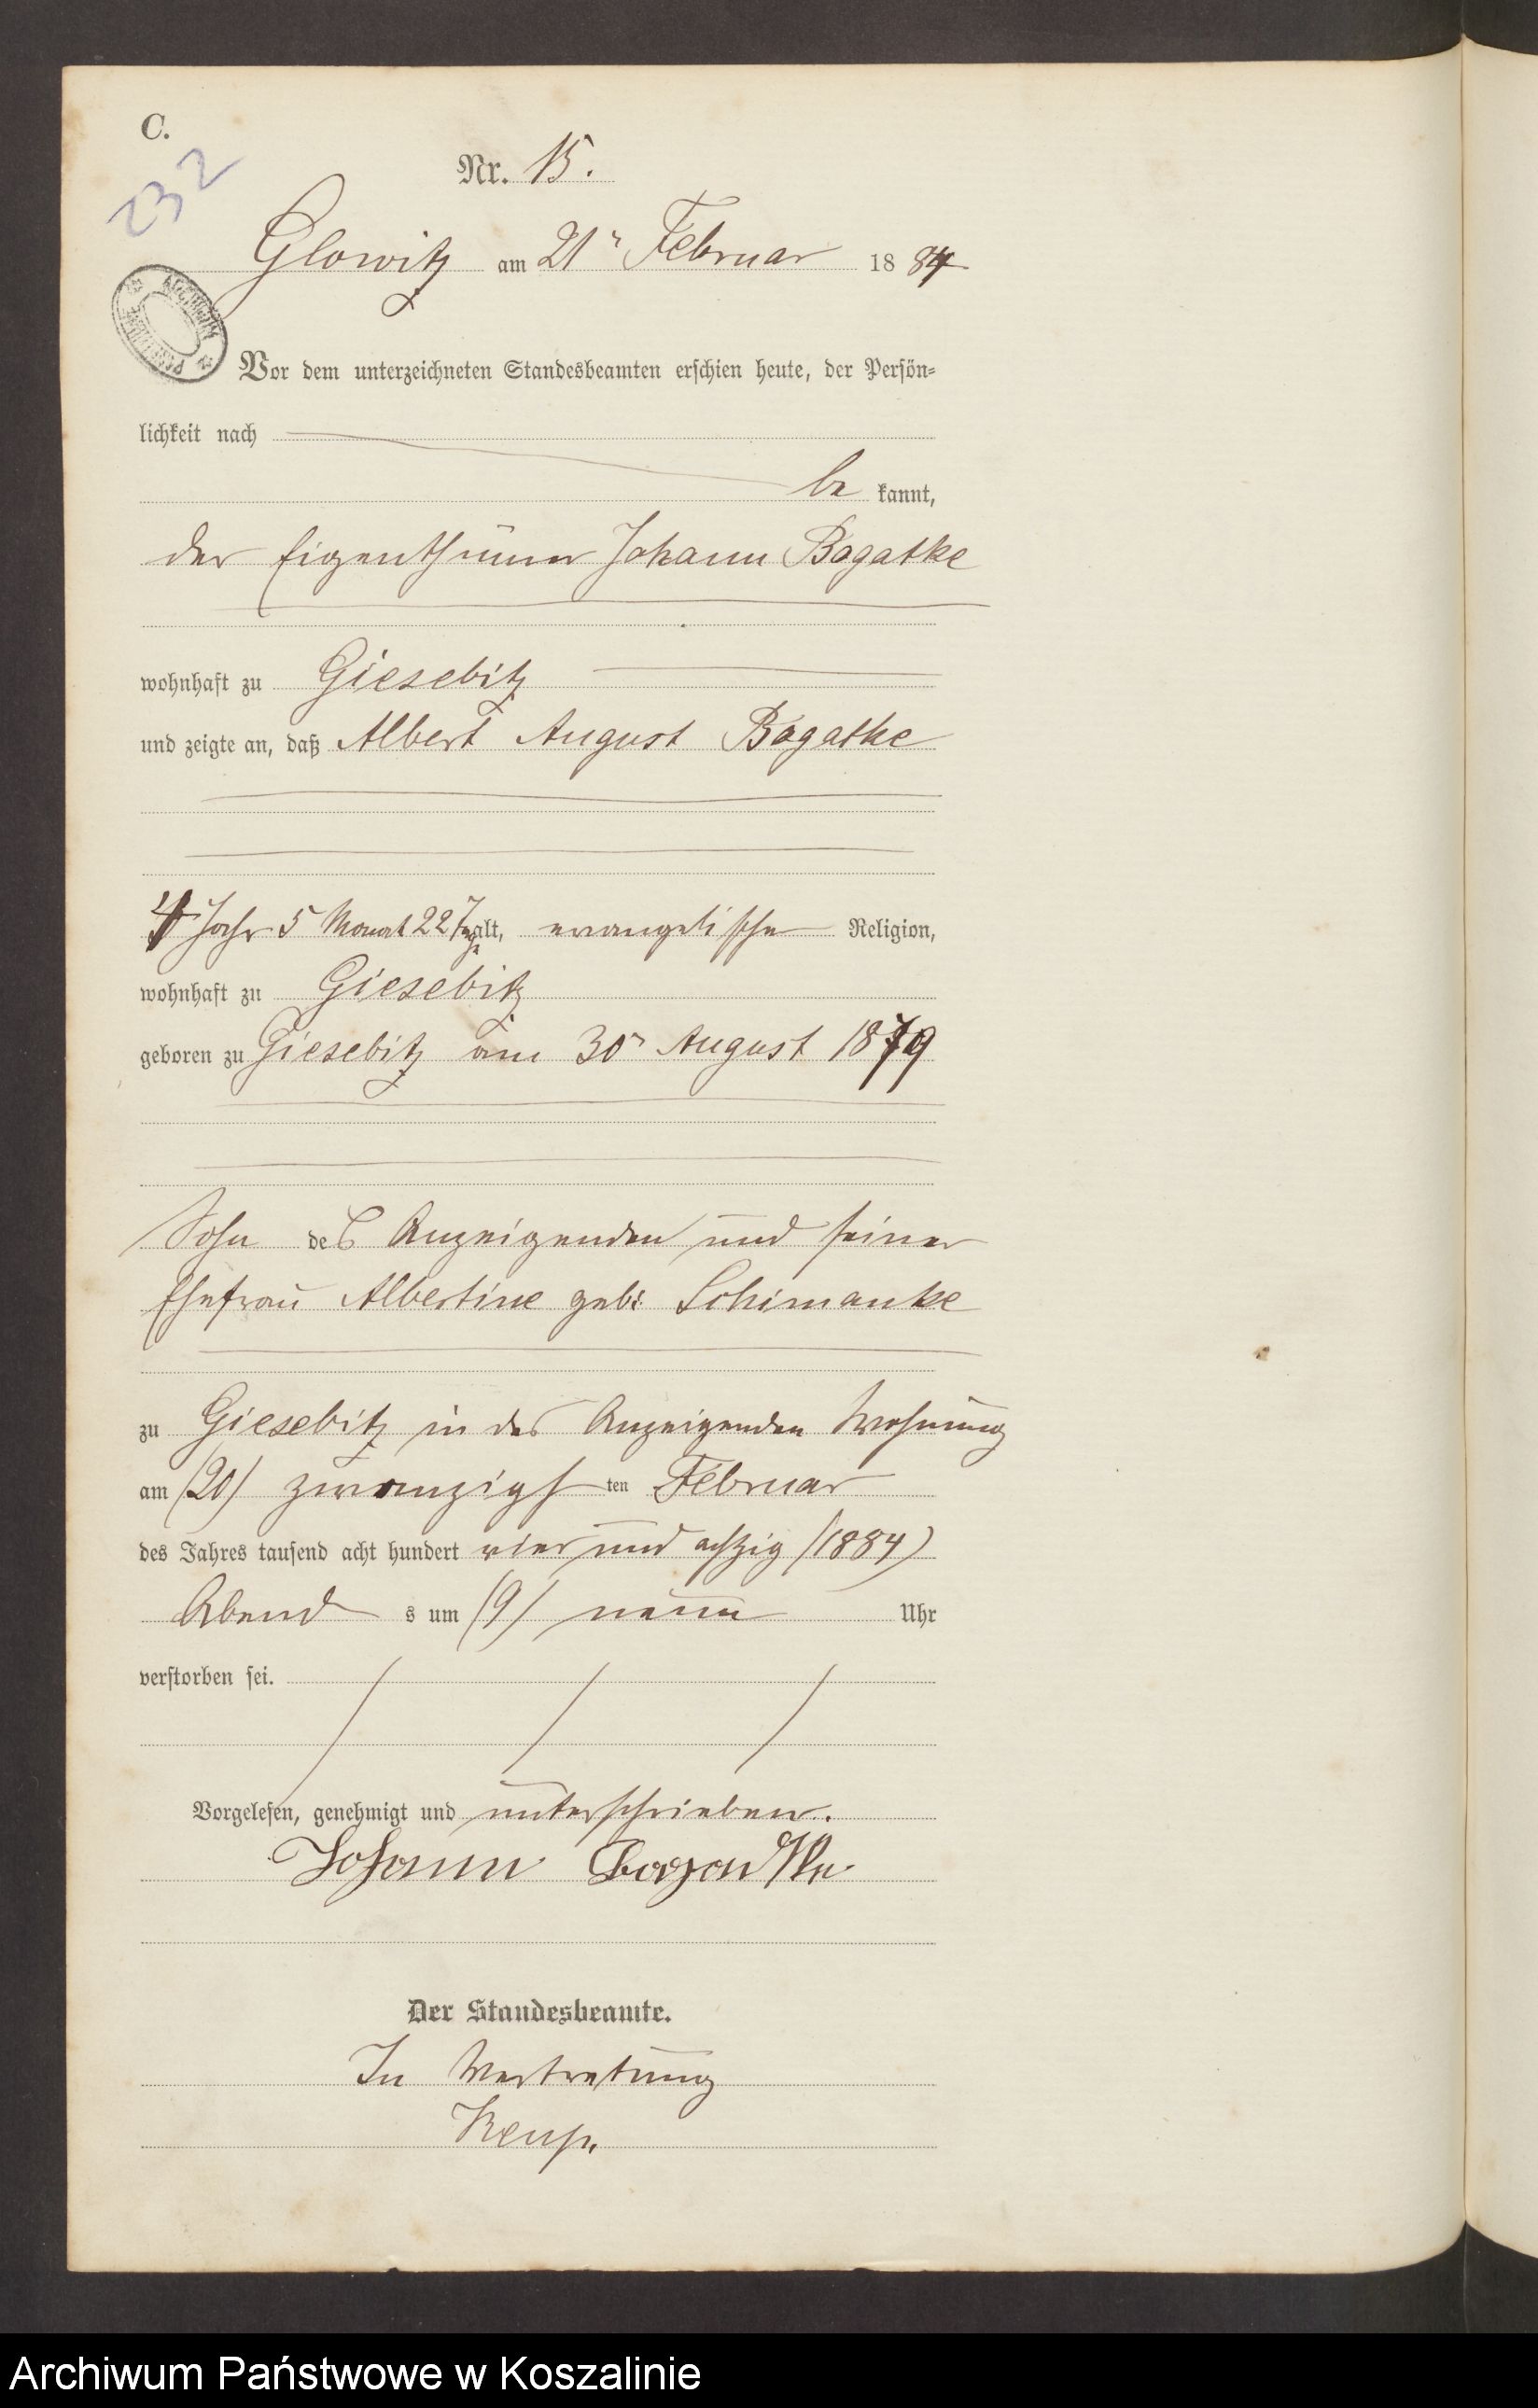 C.
232
Nr. 15.
Glowitz am 21ⁿ Februar 1884
ARCHIWUM PAŃSTWOWE
Vor dem unterzeichneten Standesbeamten erschien heute, der Persön-
lichkeit nach
be kannt,
der Eigenthümer Johann Bogatke
wohnhaft zu Giesebitz
und zeigte an, daß Albert August Bogatke
4 Jahr 5 Monat 22 Tage alt, evangelische Religion,
wohnhaft zu Giesebitz
geboren zu Giesebitz am 30ⁿ August 1879
Sohn des Anzeigenden und seiner
Ehefrau Albertine geb: Schimanke
zu Giesebitz in des Anzeigenden Wohnung
am (20) zwanzigsten Februar
des Jahres tausend acht hundert vier und achtzig (1884)
Abends um (9) neun Uhr
verstorben sei.
Vorgelesen, genehmigt und unterschrieben.
Johann
Der Standesbeamte.
In Vertretung